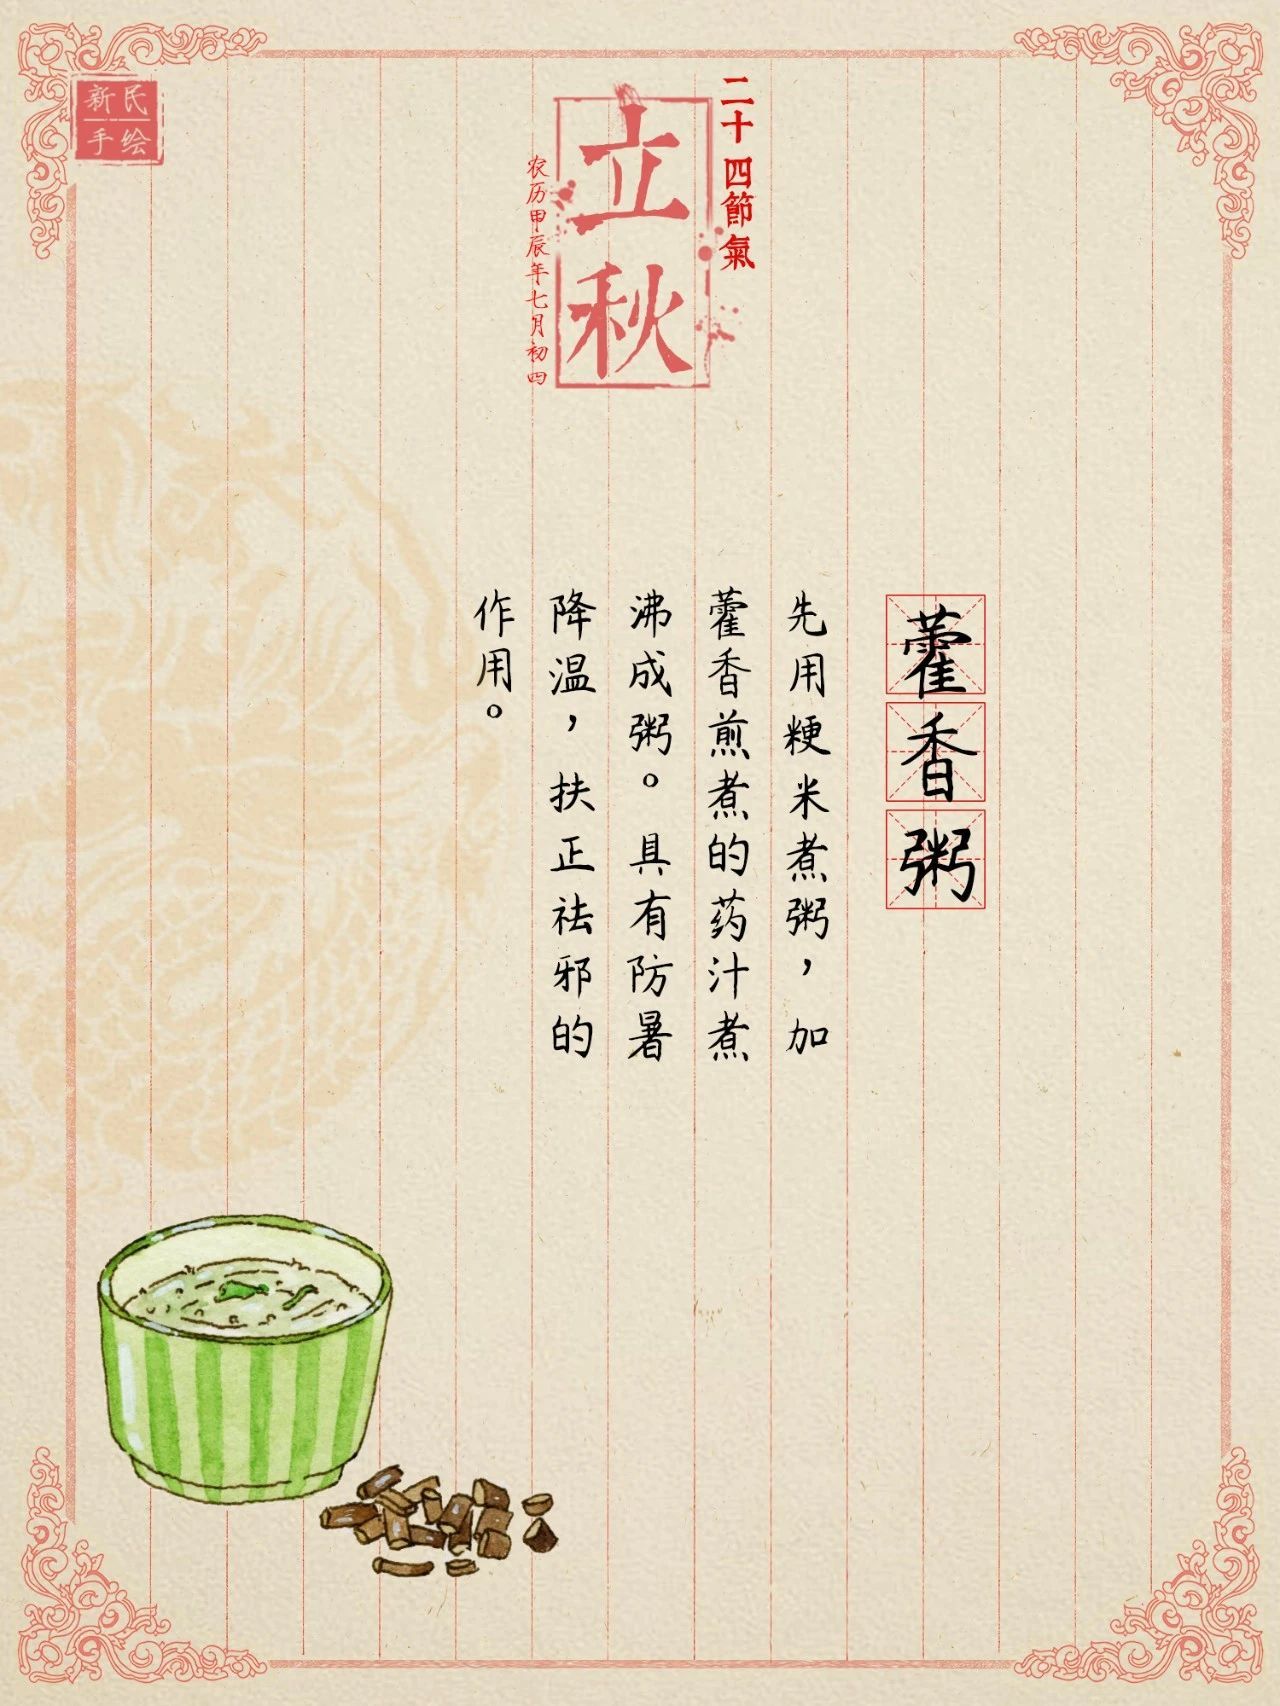 新民
手绘
二十四節氣
立秋
农历甲辰年七月初四
藿香粥
先用粳米煮粥，加
藿香煎煮的药汁煮
沸成粥。具有防暑
降温，扶正祛邪的
作用。